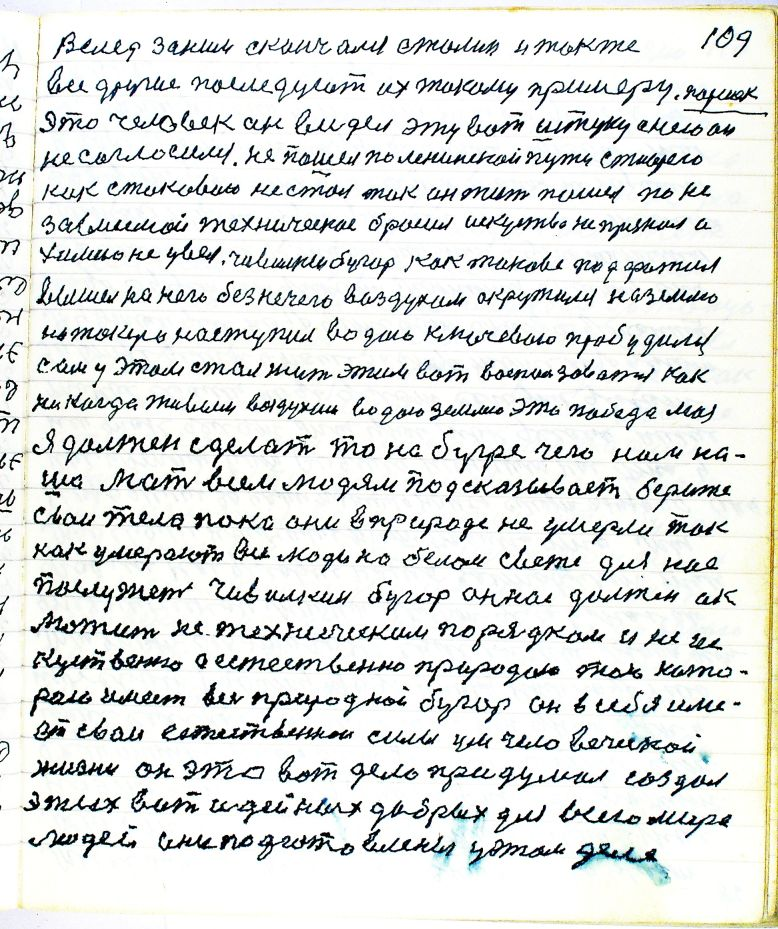 109
Вслед заним скончался сталин и также
все другие последуют их такому примеру. паршек
Это человек он видел эту вот штуку снею он
несогласился. не пошел поленинской пути стоящего
как стаковою нестал так он жит пошел по не
зависимой техническое бросил искуство не признал а
химию не увел. чивилкин бугор как такове подфатил
Вышел на него безнечего воздухом окружился наземлю
наступил водою ключевою пробудился
сам у этом стал жит этим вот воспользовался как
никогда живым воздухом водою землею это победа моя
Я должен сделат то на бугре чего нам на-
ша мат всем людям подсказывает бержте
свои тела пока они в природе не умерли так
как умерают все люди на белом свете для нас
послужет чивилкин бугор он нас должен ак
можит не техническим порядком и не ис
куственно а естественно природою тою кото-
рою имеет всех природной бугор он в себя име-
ет свои естественнои силы ум человеческой
жизни он это вот дело придумал создал
этих вот идейных добрых для всего мира
людей они подготовлены уэтом деле